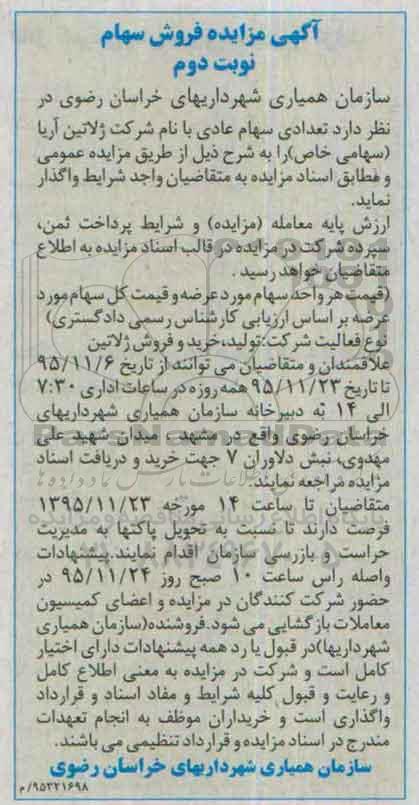 آگهی مزایده فروش سهام
نوبت دوم
سازمان همیاری شهرداریهای خراسان رضوی در
نظر دارد تعدادی سهام عادی با نام شرکت ژلاتین آریا
(سهامی خاص)را به شرح ذیل از طریق مزایده عمومی
و مطابق اسناد مزایده به متقاضیان واجد شرایط واگذار
نماید.
ارزش پایه معامله (مزایده) و شرایط پرداخت ثمن،
سپرده شرکت در مزایده در قالب اسناد مزایده به اطلاع
متقاضیان خواهد رسید .
(قیمت هر واحد سهام مورد عرضه و قیمت کل سهام مورد
عرضه بر اساس ارزیابی کارشناس رسمی دادگستری)
نوع فعالیت شرکت:تولید،خرید و فروش ژلاتین
علاقمندان و متقاضیان می توانند از تاریخ ۹۵/۱۱/۶
تا تاریخ ۹۵/۱۱/۲۳ همه روزه در ساعات اداری ۷:۳۰
الی ۱۴ به دبیرخانه سازمان همیاری شهرداریهای
خراسان رضوی واقع در مشهد - میدان شهید علی
مهدوی، نبش دلاوران ۷ جهت خرید و دریافت اسناد
مزایده مراجعه نمایند.
متقاضیان تا ساعت ۱۴ مورخه ۱۳۹۵/۱۱/۲۳
فرصت دارند تا نسبت به تحویل پاکتها به مدیریت
حراست و بازرسی سازمان اقدام نمایند.پیشنهادات
واصله راس ساعت ۱۰ صبح روز ۹۵/۱۱/۲۴ در
حضور شرکت کنندگان در مزایده و اعضای کمیسیون
معاملات بازگشایی می شود.فروشنده(سازمان همیاری
شهرداریها)در قبول یا رد همه پیشنهادات دارای اختیار
کامل است و شرکت در مزایده به معنی اطلاع کامل
و رعایت و قبول کلیه شرایط و مفاد اسناد و قرارداد
واگذاری است و خریداران موظف به انجام تعهدات
مندرج در اسناد مزایده و قرارداد تنظیمی می باشند.
سازمان همیاری شهرداریهای خراسان رضوی
۹۵۳۲۱۶۹۸/م